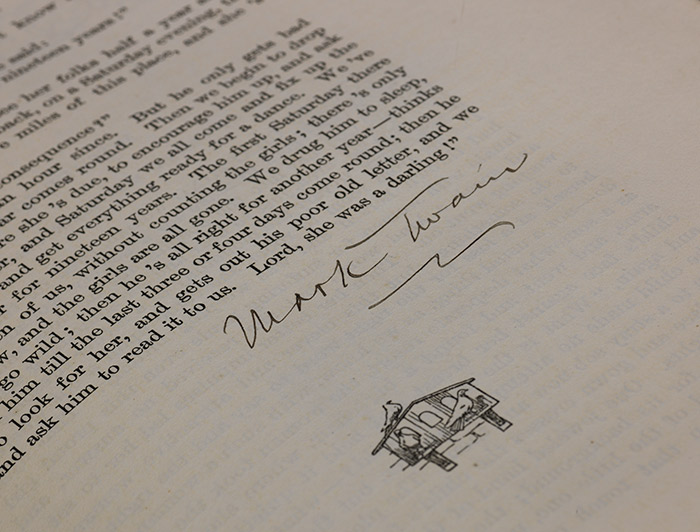 know
said:
nineteen years!"
see her folks half a year
back, on a Saturday evening,
miles of this place, and she
onsequence?"
n hour since. But he only gets bad
ar comes round. Then we begin to drop
re she's due, to encourage him up, and ask
r, and Saturday we all come and fix up the
and get everything ready for a dance. We've
r for nineteen years. The first Saturday there
n of us, without counting the girls; there's only
w, and the girls are all gone. We drug him to sleep,
go wild; then he's all right for another year—thinks
him till the last three or four days come round; then he
o look for her, and gets out his poor old letter, and we
nd ask him to read it to us. Lord, she was a darling!"
Mark Twain